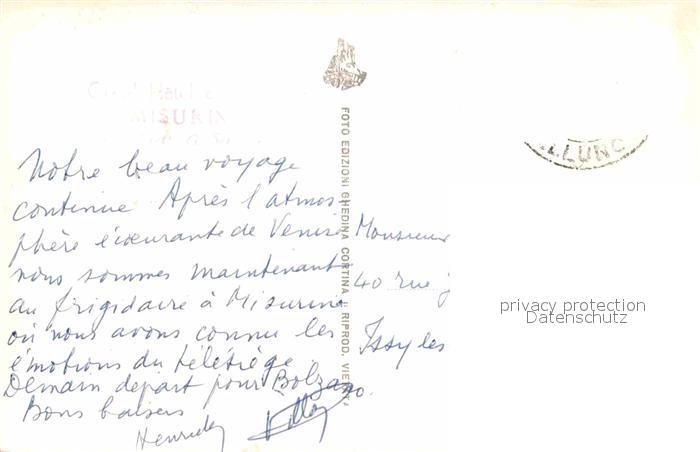 Grand Hôtel
MISURIN
Notre beau voyage
continue Après l'atmos-
phère écœurante de Venise
nous sommes maintenant
au frigidaire à Misurina
où nous avons connu les
émotions du télésiège
Demain départ pour Bolzano.
Bons baisers
FOTO EDIZIONI GHEDINA CORTINA - RIPROD. VIET
Monsieur
40 rue
Issy les
LLUNO
privacy protection
Datenschutz